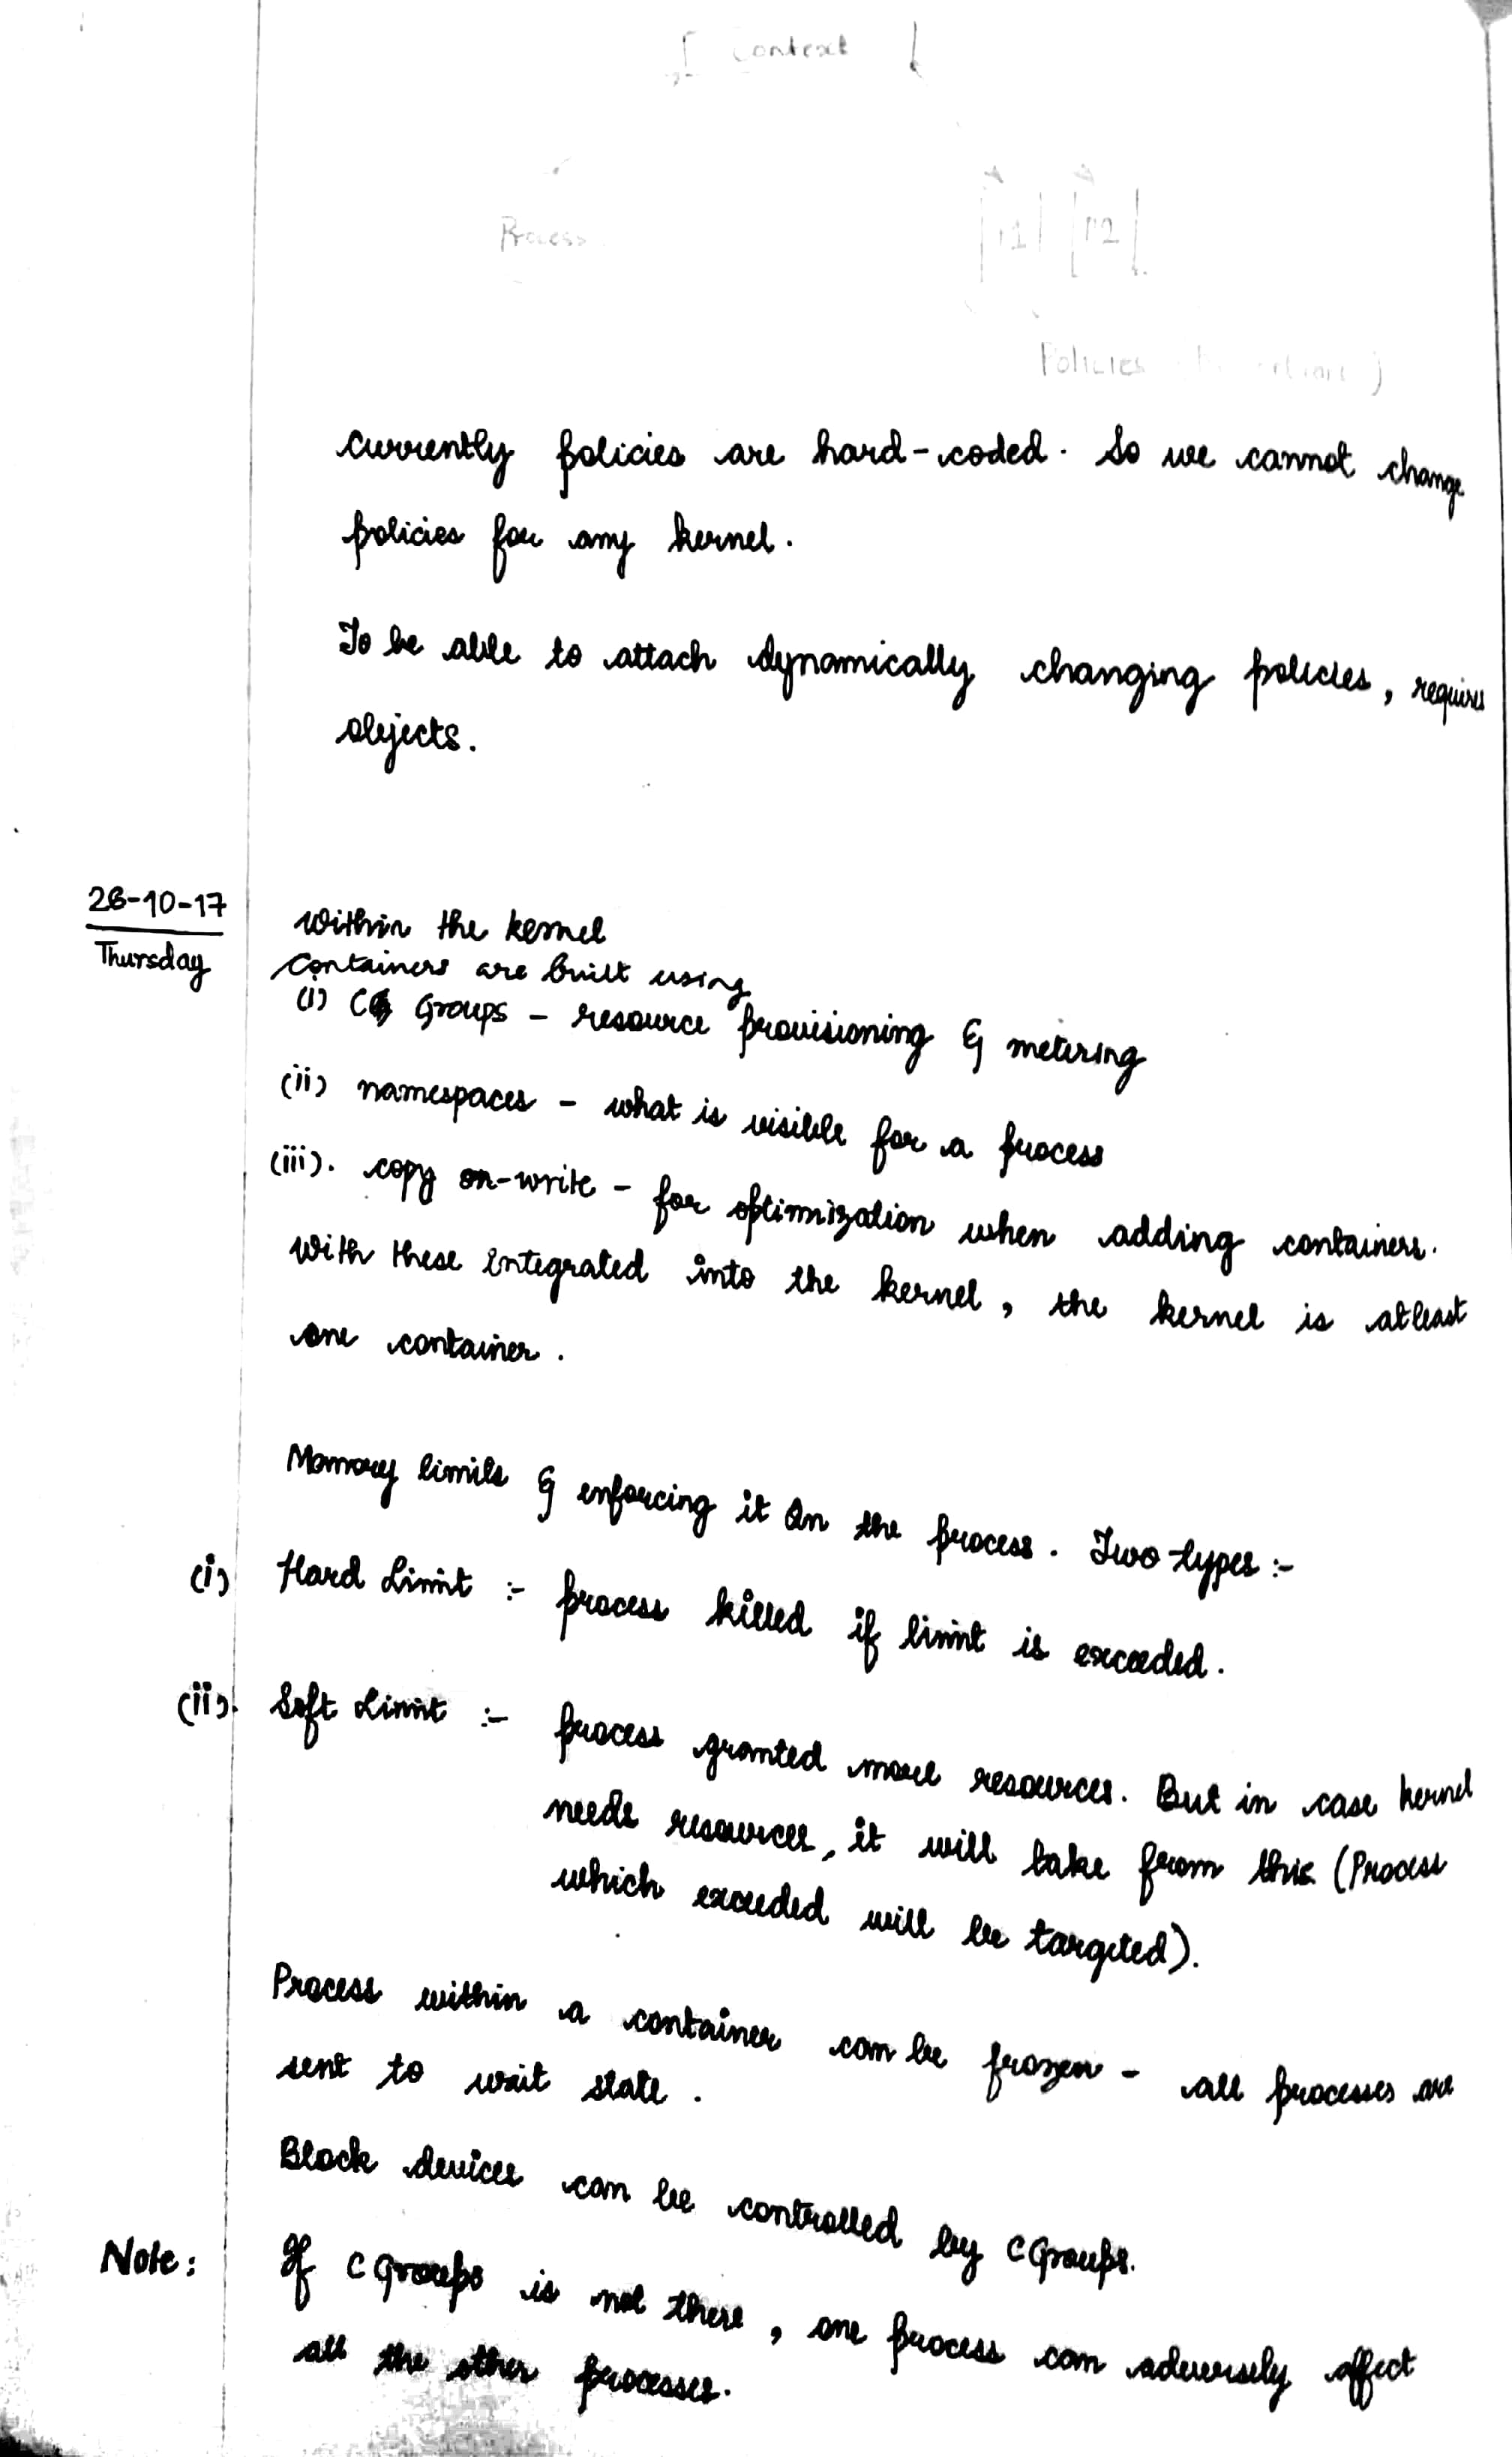 Context
Process
Policies
currently policies are hard-coded. So we cannot change
policies for any kernel.
To be able to attach dynamically changing policies, requires
objects.
26-10-17
Thursday
Within the kernel
Containers are built using
(i) C Groups - resource provisioning & metering
(ii) namespaces - what is visible for a process
(iii). copy on-write - for optimization when adding containers.
With these integrated into the kernel, the kernel is atleast
one container.
Memory limits & enforcing it on the process. Two types :-
(i) Hard Limit :- process killed if limit is exceeded.
(ii). Soft Limit :- process granted more resources. But in case kernel
needs resources, it will take from this (Process
which exceeded will be targeted).
Process within a container can be frozen - all processes are
sent to wait state.
Block devices can be controlled by C Groups.
Note: If C Groups is not there, one process can adversely affect
all the other processes.